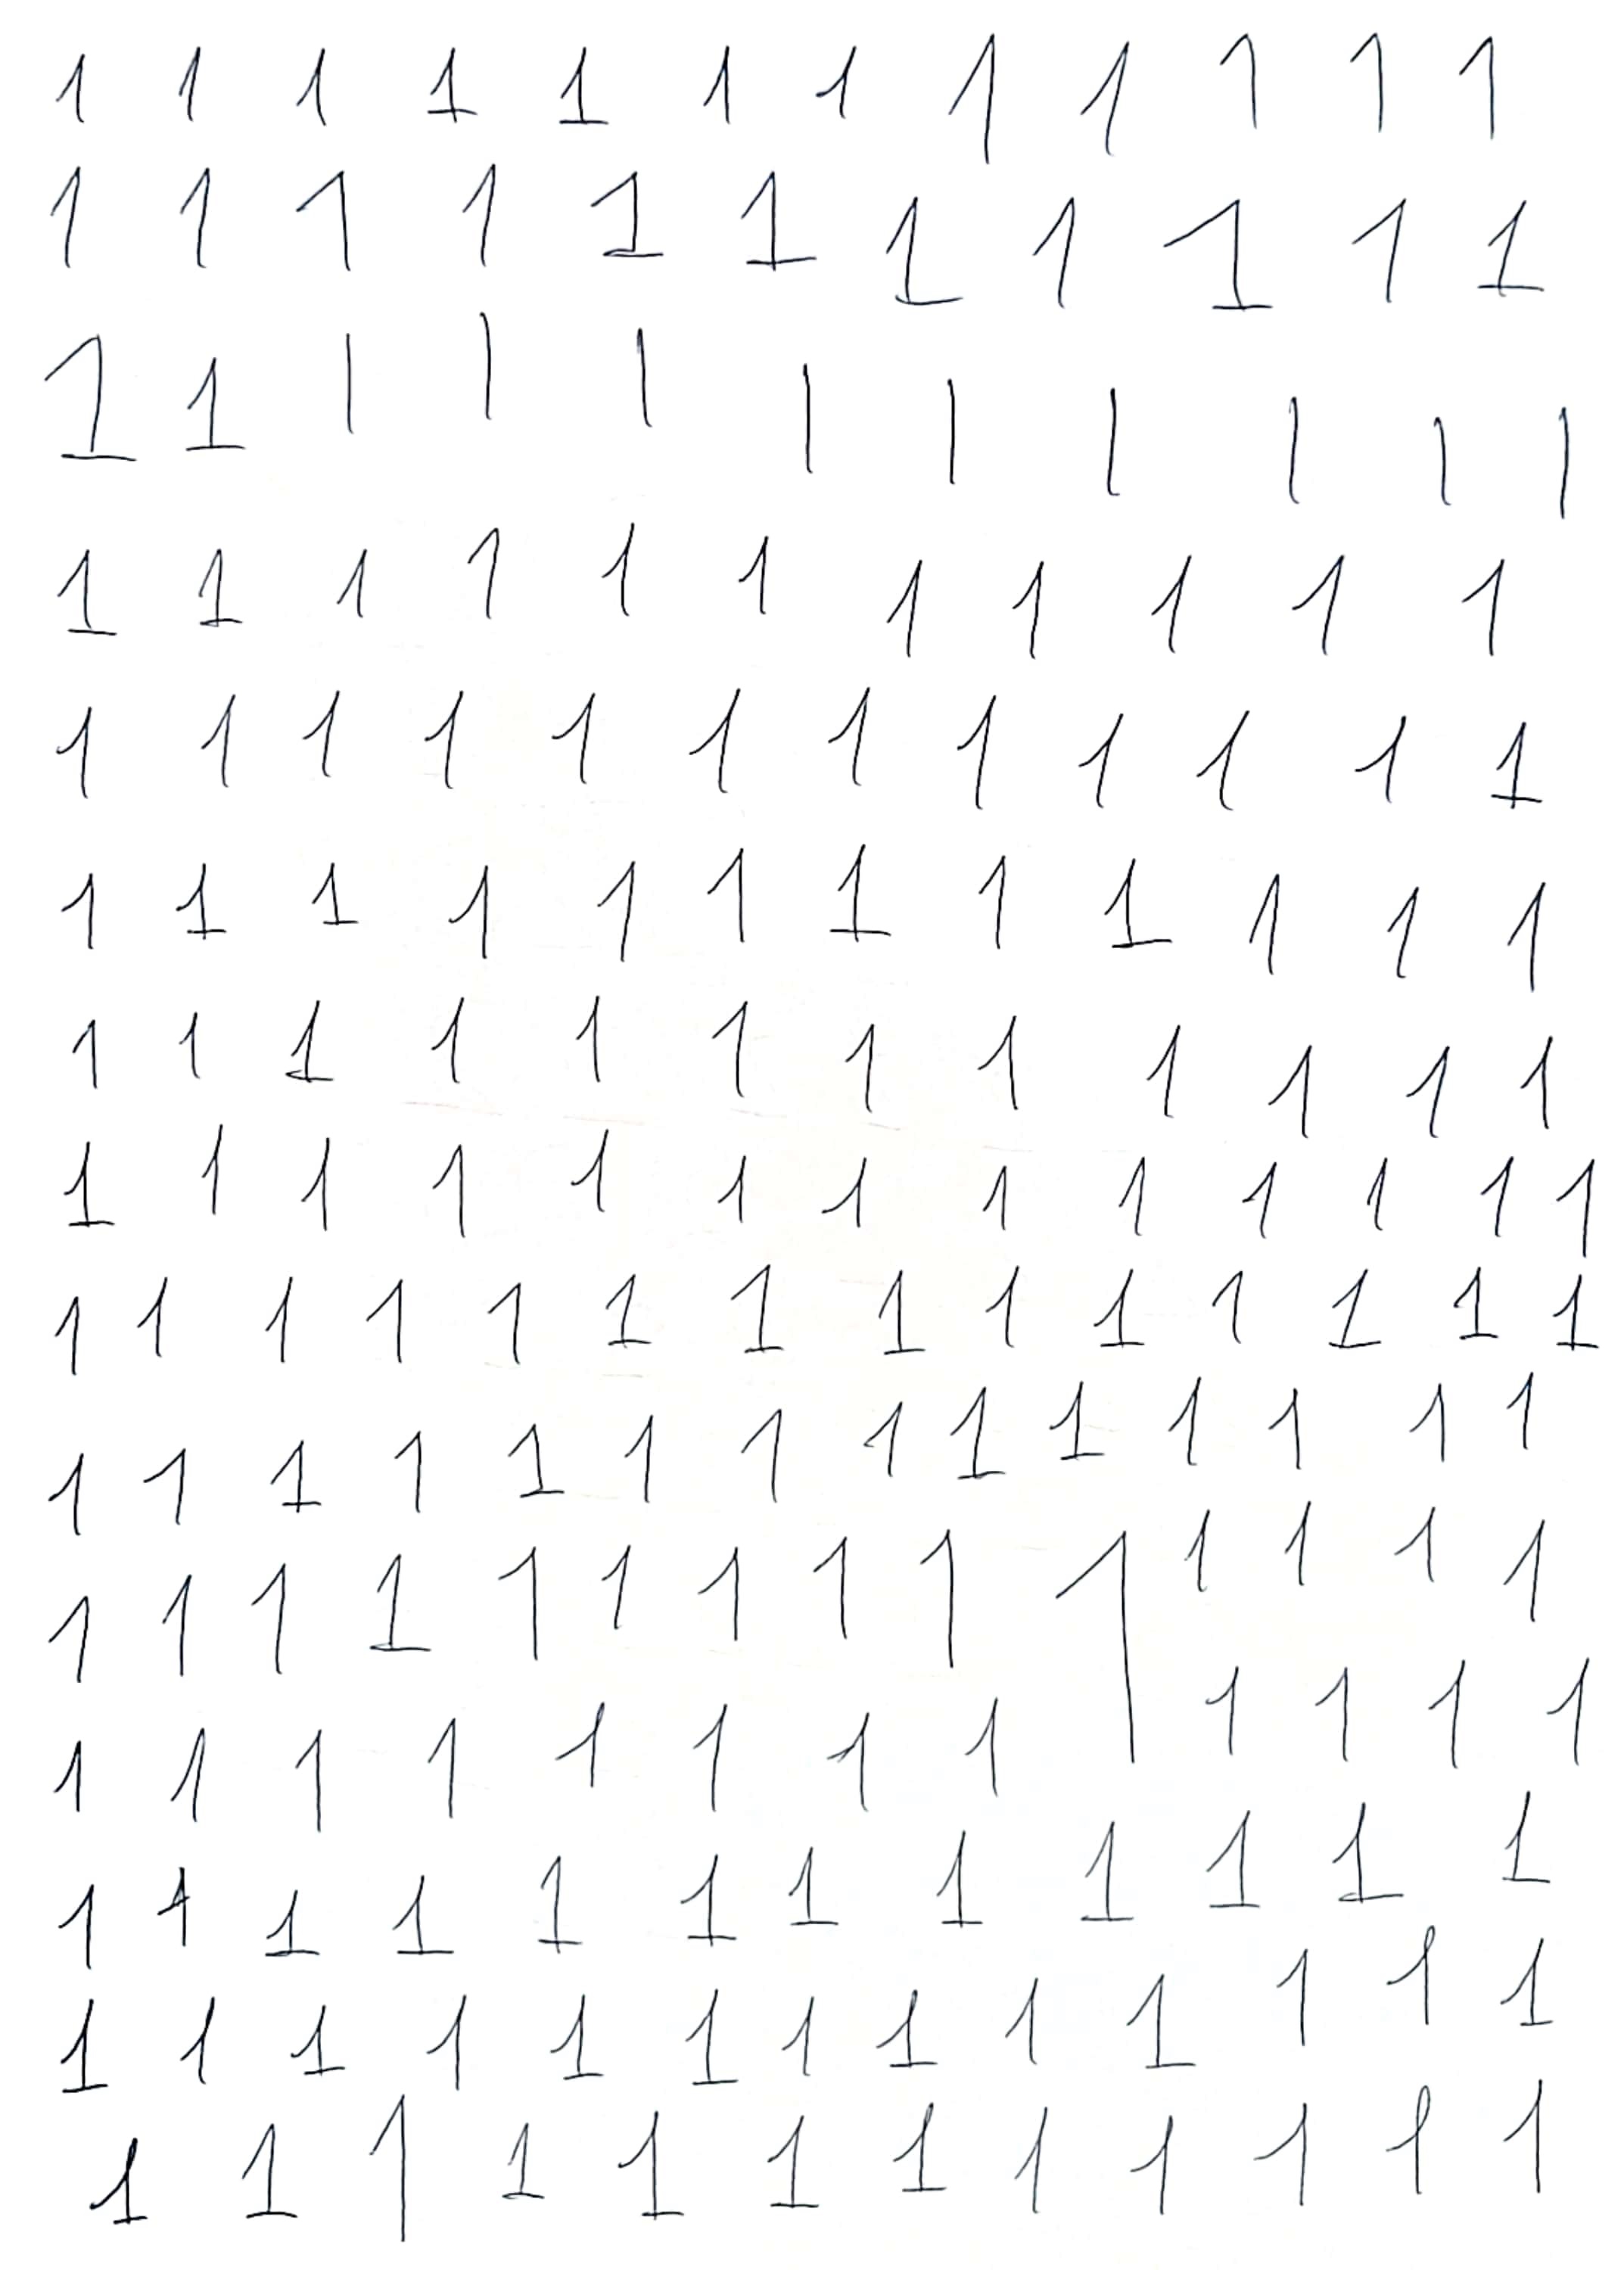 1 1 1 1 1 1 1 1 1 1 1 1
1 1 1 1 1 1 1 1 1 1 1
1 1 1 1 1 1 1 1 1 1 1
1 1 1 1 1 1 1 1 1 1 1
1 1 1 1 1 1 1 1 1 1 1 1
1 1 1 1 1 1 1 1 1 1 1 1
1 1 1 1 1 1 1 1 1 1 1 1
1 1 1 1 1 1 1 1 1 1 1 1 1
1 1 1 1 1 1 1 1 1 1 1 1 1 1
1 1 1 1 1 1 1 1 1 1 1 1 1 1
1 1 1 1 1 1 1 1 1 1 1 1 1 1
1 1 1 1 1 1 1 1 1 1 1 1
1 1 1 1 1 1 1 1 1 1 1 1
1 1 1 1 1 1 1 1 1 1 1 1 1
1 1 1 1 1 1 1 1 1 1 1 1